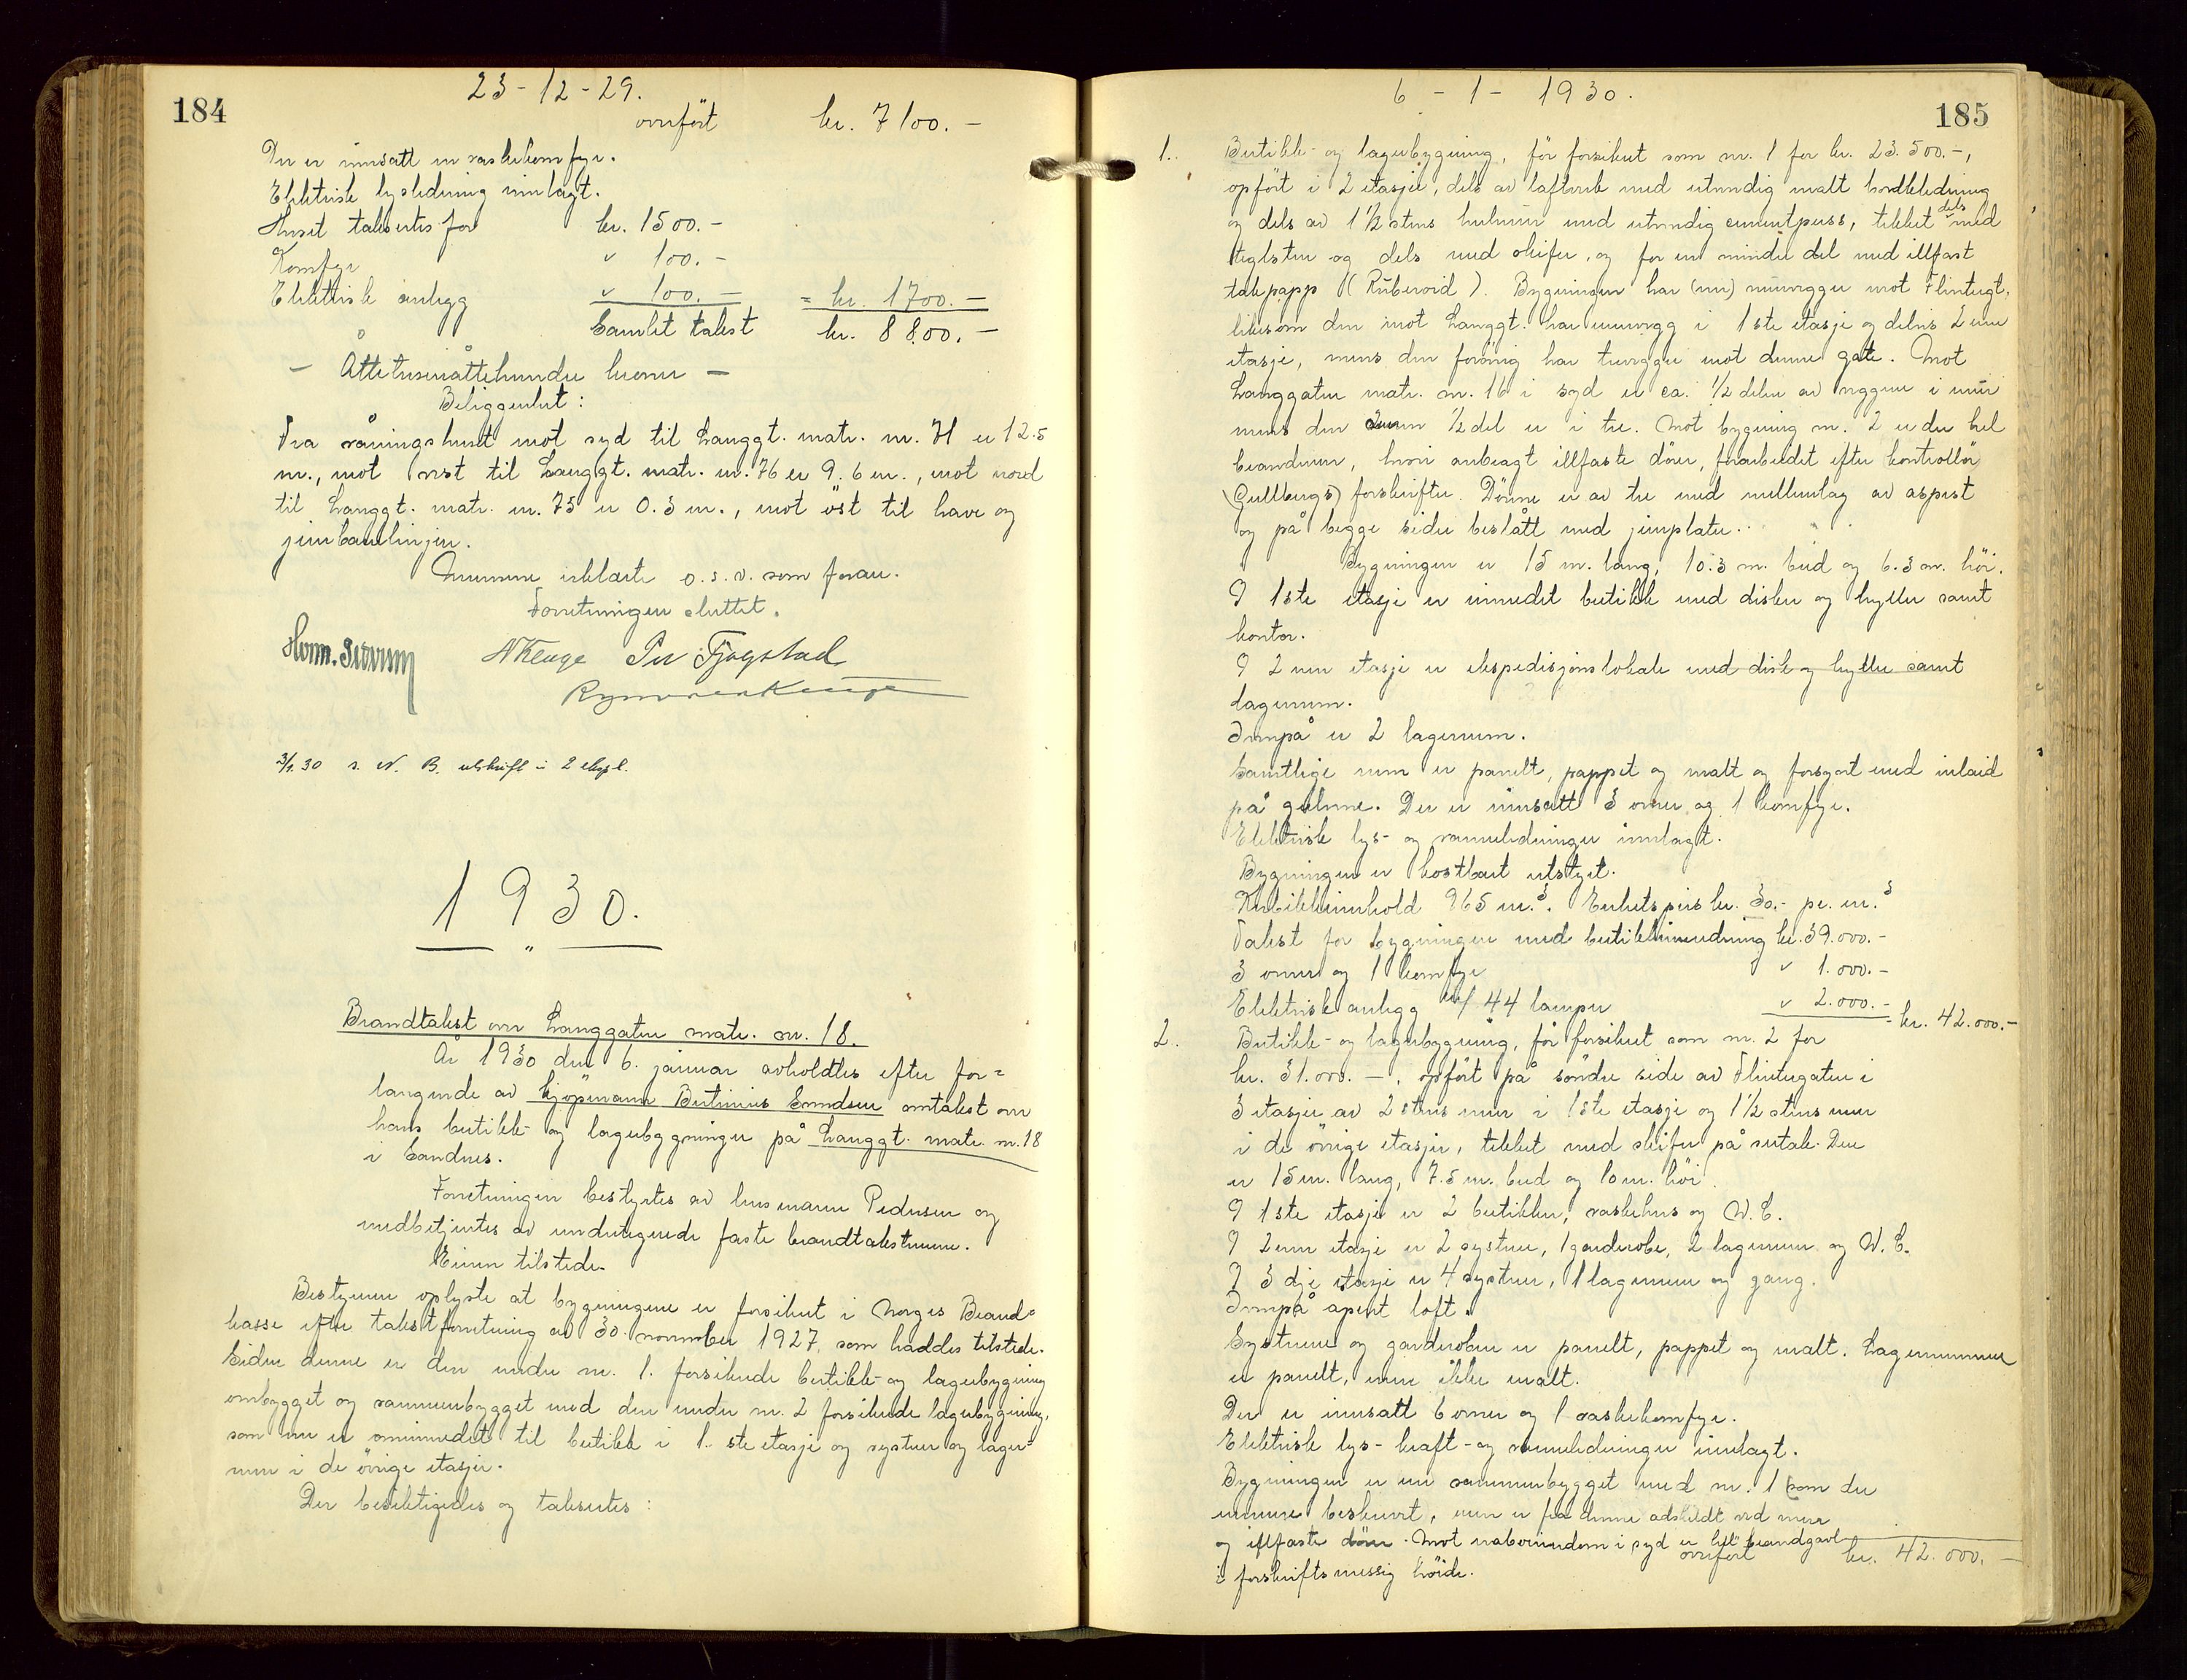 184
23-12-29.
overfört kr. 7100.-
Der er innsatt en vaskekomfyr.
Elektrisk lysledning innlagt.
Huset takseres for kr. 1500.-
Komfyr " 100.-
Elektrisk anlegg " 100.- = kr. 1700.-
Samlet takst kr. 8800.-
- Åttetusenåttehundre kroner -
Beliggenhet:
Fra våningshuset mot syd til Langgt. matr. nr. 71 er 12.5
m., mot vest til Langgt. matr. nr. 76 er 9.6 m., mot nord
til Langgt. matr. nr. 75 er 0.3 m., mot öst til have og
jernbanelinjen.
Mennene erklærte o.s.v. som foran.
Forretningen sluttet.
Per Fjogstad
3/1.30 s. N. B. utskrift i 2 ekspl.
1930.
Brandtakst over Langgaten matr. nr. 18.
År 1930 den 6. januar avholdtes efter for=
langende av kjöpmann Bertinius Enndsen omtakst over
hans butikk- og lagerbygninger på Langgt. matr. nr. 18
i Sandnes.
Forretningen bestyrtes av lensmann Pedersen og
medbetjentes av undertegnede faste brandtakstmenn.
Eieren tilstede.
Bestyreren oplyste at bygningene er forsikret i Norges Brand=
kasse efter takstforretning av 30. november 1927, som haddes tilstede.
Siden denne er den under nr. 1. forsikrede butikk- og lagerbygning
ombygget og sammenbygget med den under nr. 2 forsikrede lagerbygning,
som nu er ominnredet til butikk i 1.ste etasje og systuer og lager=
rum i de övrige etasjer.
Der besiktigedes og takseres:
185
6 - 1 - 1930.
1. Butikk- og lagerbygning, för forsikret som nr. 1 for kr. 23.500.-,
opfört i 2 etasjer, dels av lafteverk med utvendig malt bordkledning
og dels av 1 1/2 stens hulmur med utvendig cementpuss, tekket dels med
teglsten og dels med skifer, og for en mindre del med illfast
takpapp (Ruberoid). Bygningen har (nu) murvegger mot Flintegt.
likesom den mot Langgt. har murvegg i 1ste etasje og delvis 2nen
etasje, mens den forövrig har trevegger mot denne gate. Mot
Langgaten matr. nr. 16 i syd er ca. 1/2 delen av veggen i mur
mens den annen 1/2 del er i tre. Mot bygning nr. 2 er der hel
brandmur, hvori anbragt illfaste dörer, forarbeidet efter kontrollör
(Gullbergs) forskrifter. Dörene er av tre med mellemlag av aspest
og på begge sider beslått med jernplater.
Bygningen er 15 m. lang, 10.3 m. bred og 6.3 m. höi.
I 1ste etasje er innredet butikk med disker og hyller samt
kontor.
I 2nen etasje er ekspedisjonslokale med disk og hyller samt
lagerrum.
Ovenpå er 2 lagerrum.
Samtlige rum er panelt, pappet og malt og forsynt med inlaid
på gulvene. Der er innsatt 3 ovner og 1 komfyr.
Elektrisk lys- og varmeledninger innlagt.
Bygningen er kostbart utstyrt.
Kubikkinnhold 965 m.³. Enhetspris kr. 30.- pr. m.³
Takst for bygningen med butikkinnredning kr. 39.000.-
3 ovner og 1 komfyr " 1.000.-
Elektrisk anlegg m/ 44 lamper " 2.000.- = kr. 42.000.-
2. Butikk- og lagerbygning, för forsikret som nr. 2 for
kr. 31.000.-, opfört på söndre side av Flintegaten i
3 etasjer av 2 stens mur i 1ste etasje og 1 1/2 stens mur
i de övrige etasjer, tekket med skifer på rutak. Den
er 15 m. lang, 7.5 m. bred og 10 m. höi.
I 1ste etasje er 2 butikker, vaskehus og W.C.
I 2nen etasje er 2 systuer, 1 garderobe, 2 lagerrum og W.C.
I 3dje etasje er 4 systuer, 1 lagerrum og gang.
Ovenpå åpent loft.
Systuene og garderoben er panelt, pappet og malt. Lagerrummene
er panelt, men ikke malt.
Der er innsatt 6 ovner og 1 vaskekomfyr.
Elektrisk lys- kraft- og varmeledninger innlagt.
Bygningen er nu sammenbygget med nr. 1 som der
nærmere beskrevet, men er fra denne adskildt ved mur
og illfaste dörer. Mot naboeiendom i syd er hel brandgavl
i forskriftsmessig höide.
overfört kr. 42.000.-